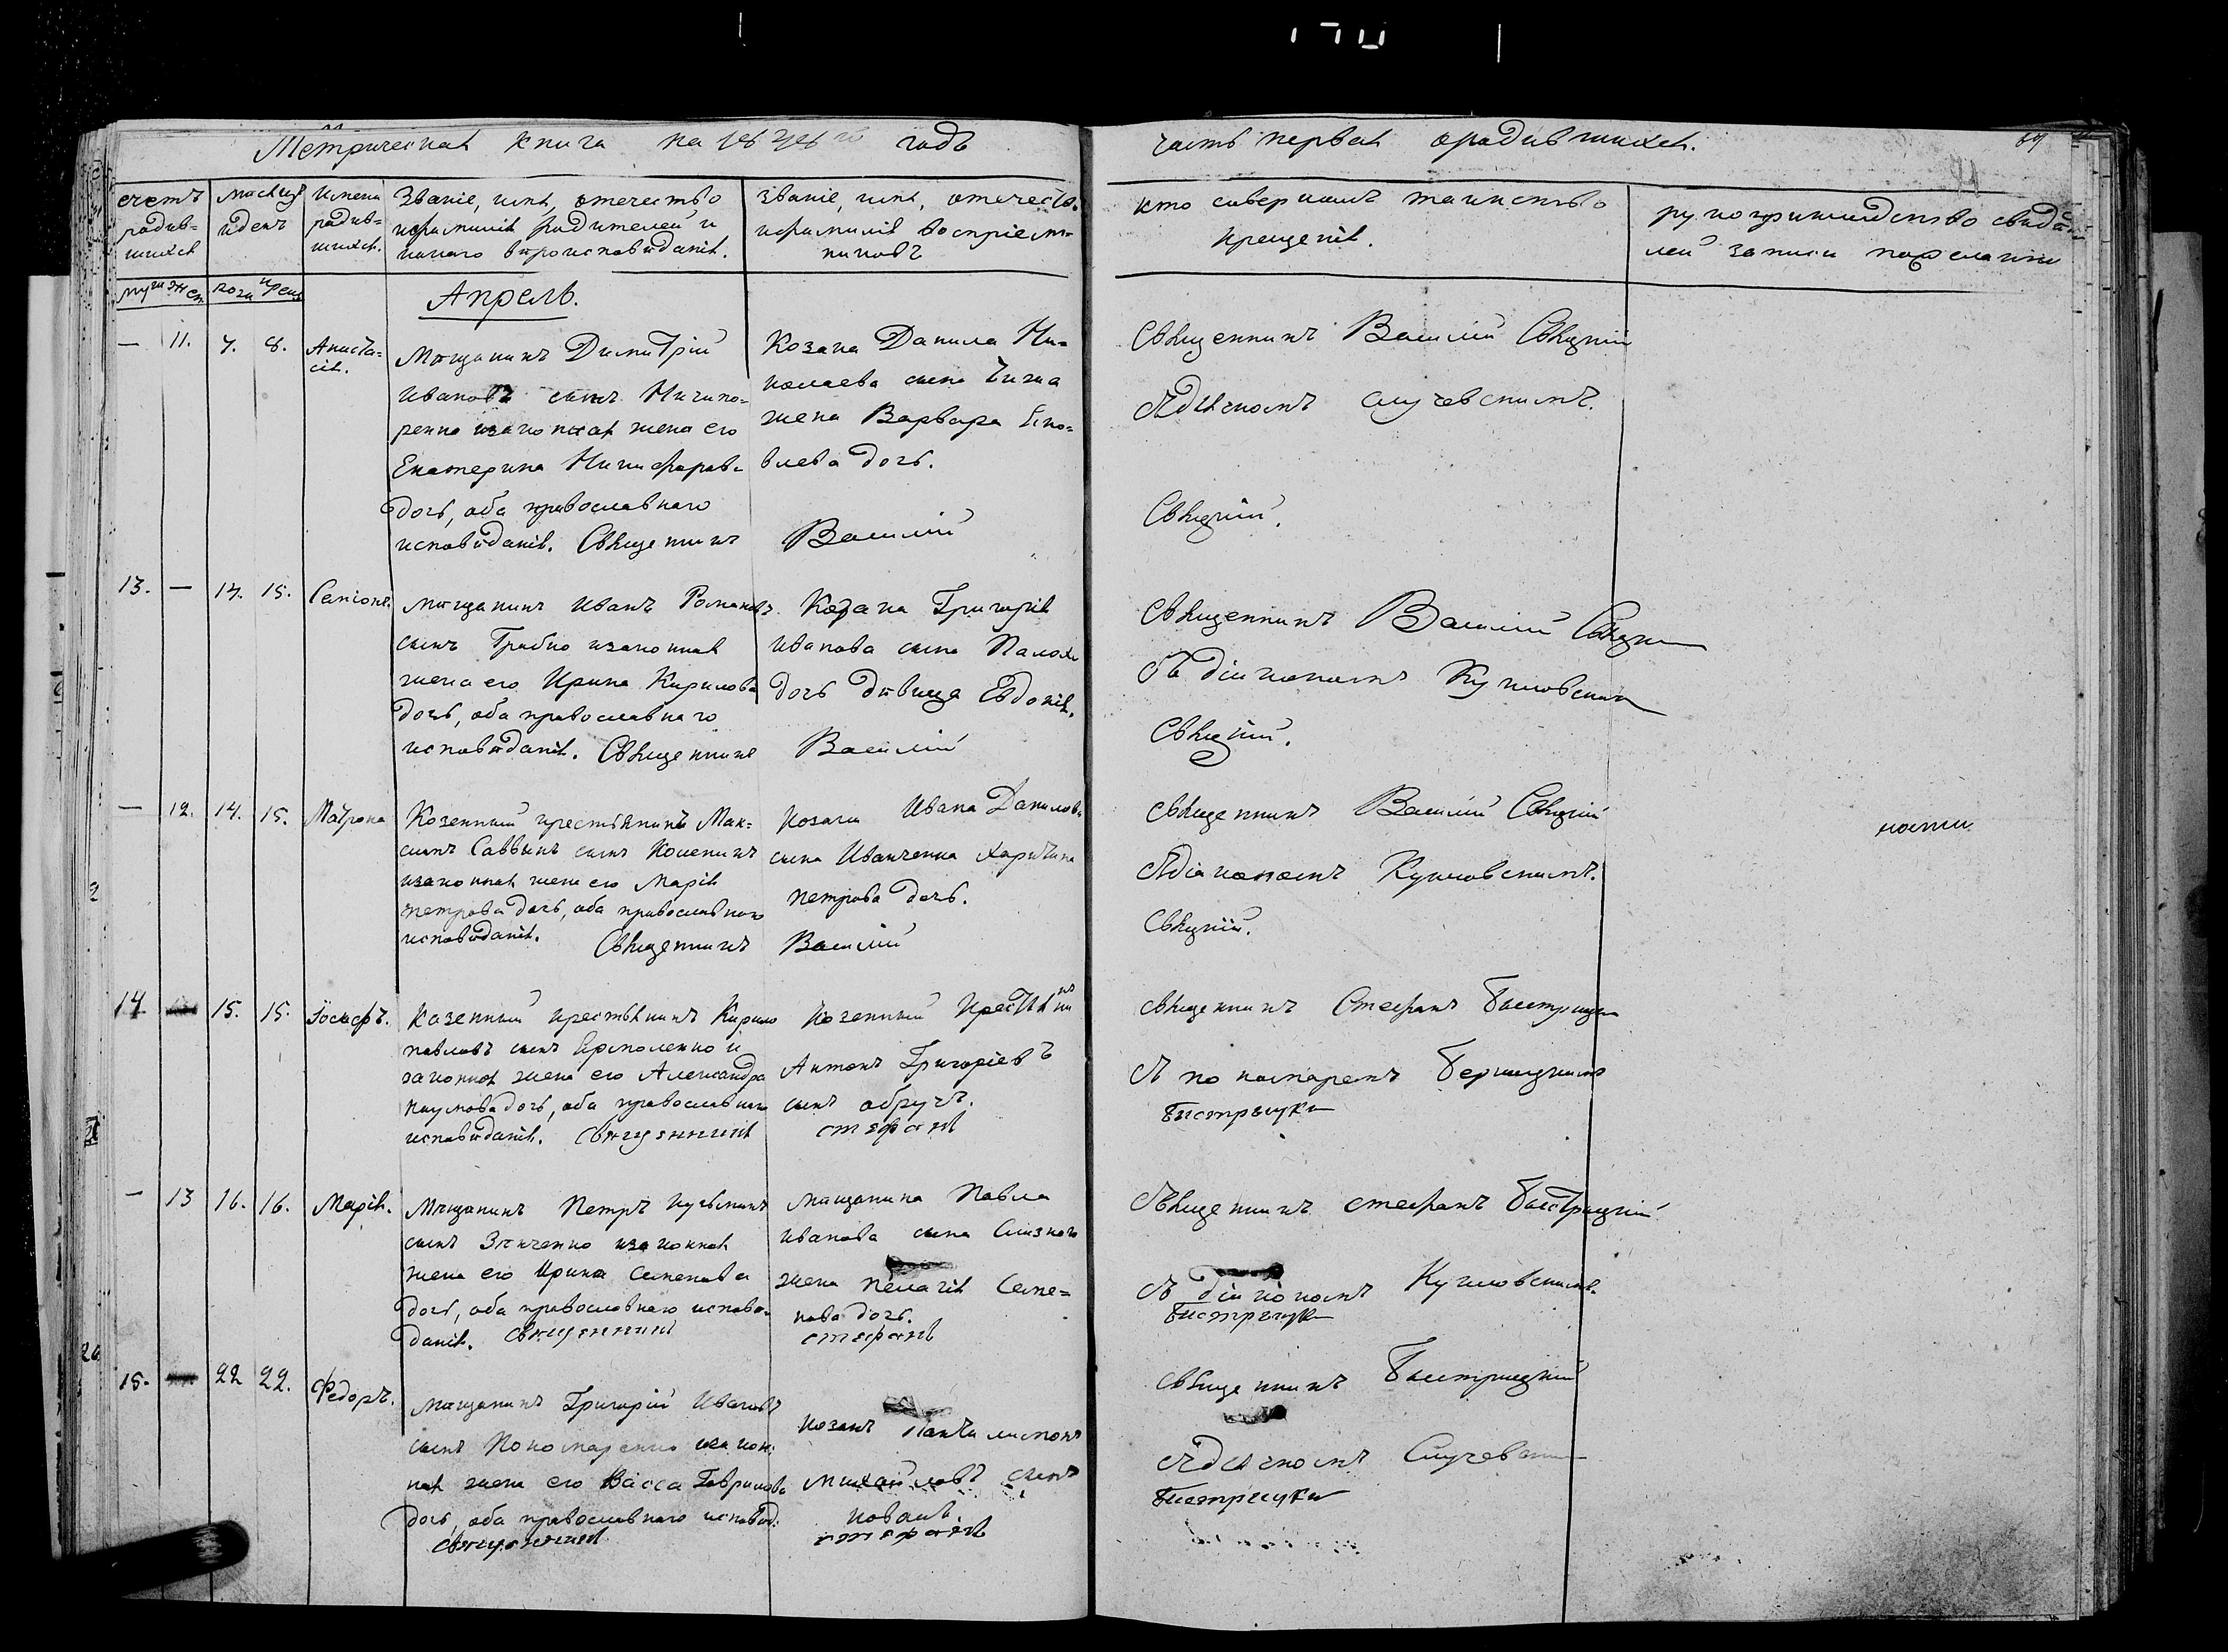 Метрическая книга на 1848 годъ
часть первая о родившихся.
69
счетъ родив=шихся
мѣсяцъ и день
имена родив=шихся.
Званіе, имя, отечество
и фамилія родителей и
какого вѣроисповѣданія.
Званіе, имя, отечество.
и фамилія воспріем=
никовъ
кто совершалъ таинство
крещенія.
рукоприкладство свидѣте
лей записи по желанію
муж жен рожд крещ
Апрель.
— 11. 7. 8. Анаста=
сія.
Мѣщанинъ Димитрій
Ивановъ сынъ Ничипо=
ренко и законная жена его
Екатерина Никифорова
дочь, оба православнаго
исповѣданія. Священникъ
Козака Данила Ни=
колаева сына Чижа
жена Варвара Яко=
влева дочь.
Василій
Священникъ Василій Свѣцкій
съ дячкомъ Случевскимъ.
Свѣцкій.
13. — 14. 15. Семіонъ.
мѣщанинъ Иванъ Романовъ
сынъ Грабко и законная
жена его Ирина Кирилова
дочь, оба православнаго
исповѣданія. Священникъ
Козака Григорія
Иванова сына
дочь дѣвица Евдокія.
Василій
Священникъ Василій
съ діакономъ
Свѣцкій.
— 12. 14. 15. Матрона
Козенный крестьянинъ Мак=
симъ Саввинъ сынъ
и законная жена его Марія
Петрова дочь, оба православнаго
исповѣданія. Священникъ
козака Ивана Данилова
сына Иванченка
Петрова дочь.
Василій
священникъ Василій Свѣцкій
съ діакономъ
Свѣцкій.
14 15. 15. Іосифъ.
Казенный крестьянинъ Кирило
Павловъ сынъ Ярмоленко и
законная жена его Александра
Наумова дочь, оба православнаго
исповѣданія. священникъ
Козенный крестьянинъ
Антонъ Григоріевъ
сынъ обручъ.
стефанъ
священникъ Стефанъ Быстрицкій
съ пономаремъ
Быстрицкій
— 13 16. 16. Марія.
Мѣщанинъ Петръ Кузьминъ
сынъ Зѣнченко и законная
жена его Ирина Семенова
дочь, оба православнаго исповѣ=
данія. священникъ
мѣщанина Павла
Иванова сына
жена Пелагія Семе=
нова дочь.
стефанъ
Священникъ стефанъ Быстрицкій
съ діакономъ
Быстрицкій
15. 22 22. Федоръ.
мѣщанинъ Григорій Ивановъ
сынъ Пономаренко и закон=
ная жена его Васса Гаврилова
дочь, оба православнаго исповѣд:
священникъ
козакъ Пантилимонъ
Михайловъ сынъ
коваль.
стефанъ
священникъ Быстрицкій
съ дячкомъ
Быстрицкій